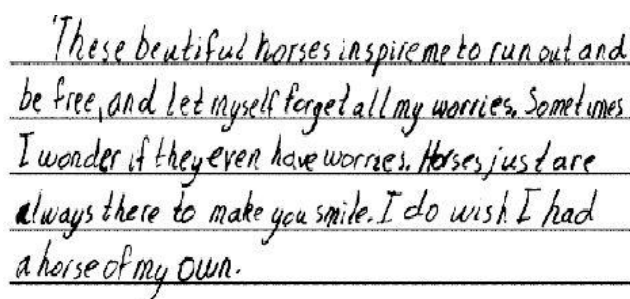 These beutiful horses inspire me to run out and
be free, and let myself forget all my worries. Sometimes
I wonder if they even have worries. Horses just are
always there to make you smile. I do wish I had
a horse of my own.